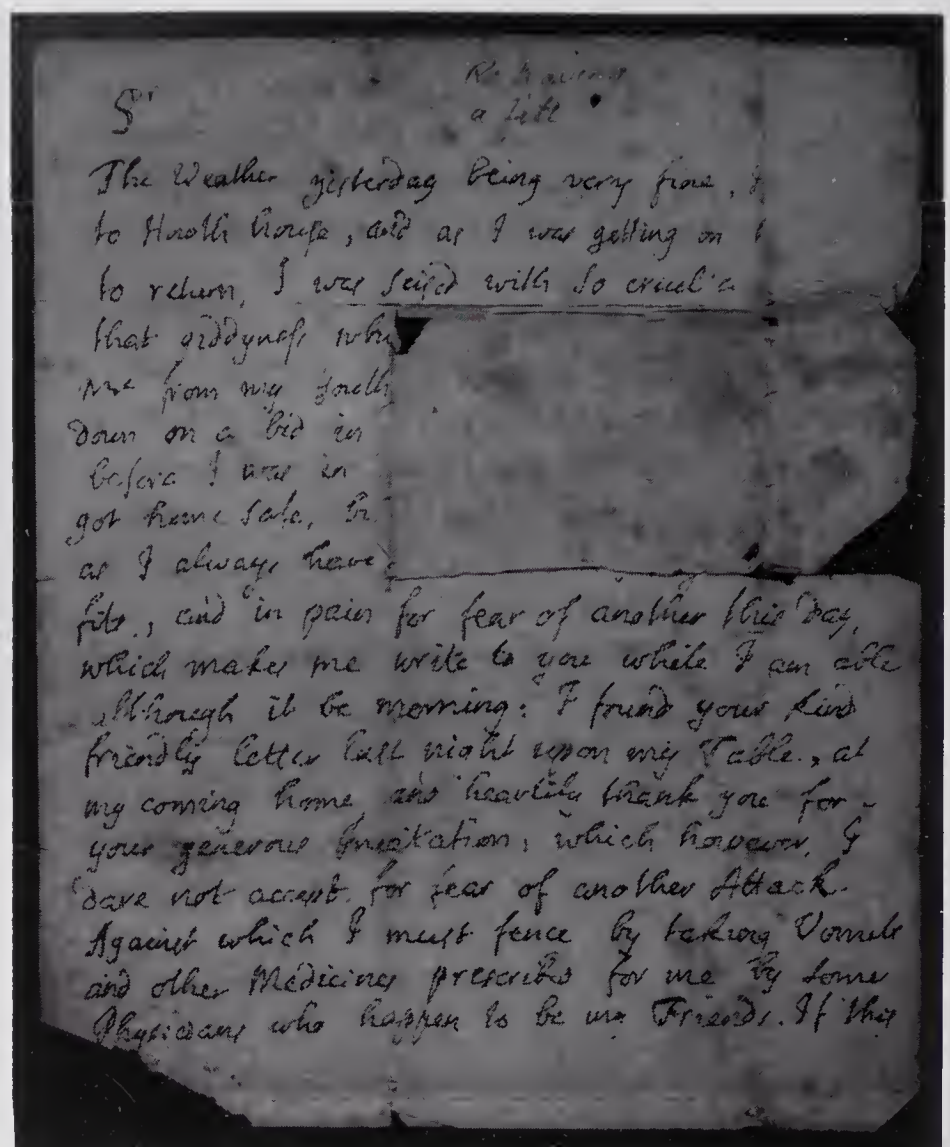 Re having
a fitt
Sr
The Weather yesterday being very fine, I
to Howth house, and as I was getting on
to return, I was seised with so cruel a
that giddyness whi
me from my youth
down on a bed in
before I was in
got home safe, b
as I always have
fits, and in pain for fear of another this day,
which makes me write to you while I am able
although it be morning: I found your kind
friendly letter last night upon my Table, at
my coming home and heartily thank you for
your generous Invitation, which however, I
dare not accept for fear of another Attack.
Against which I must fence by taking Vomits
and other Medicines prescribd for me by some
Physicians who happen to be my Friends. If this